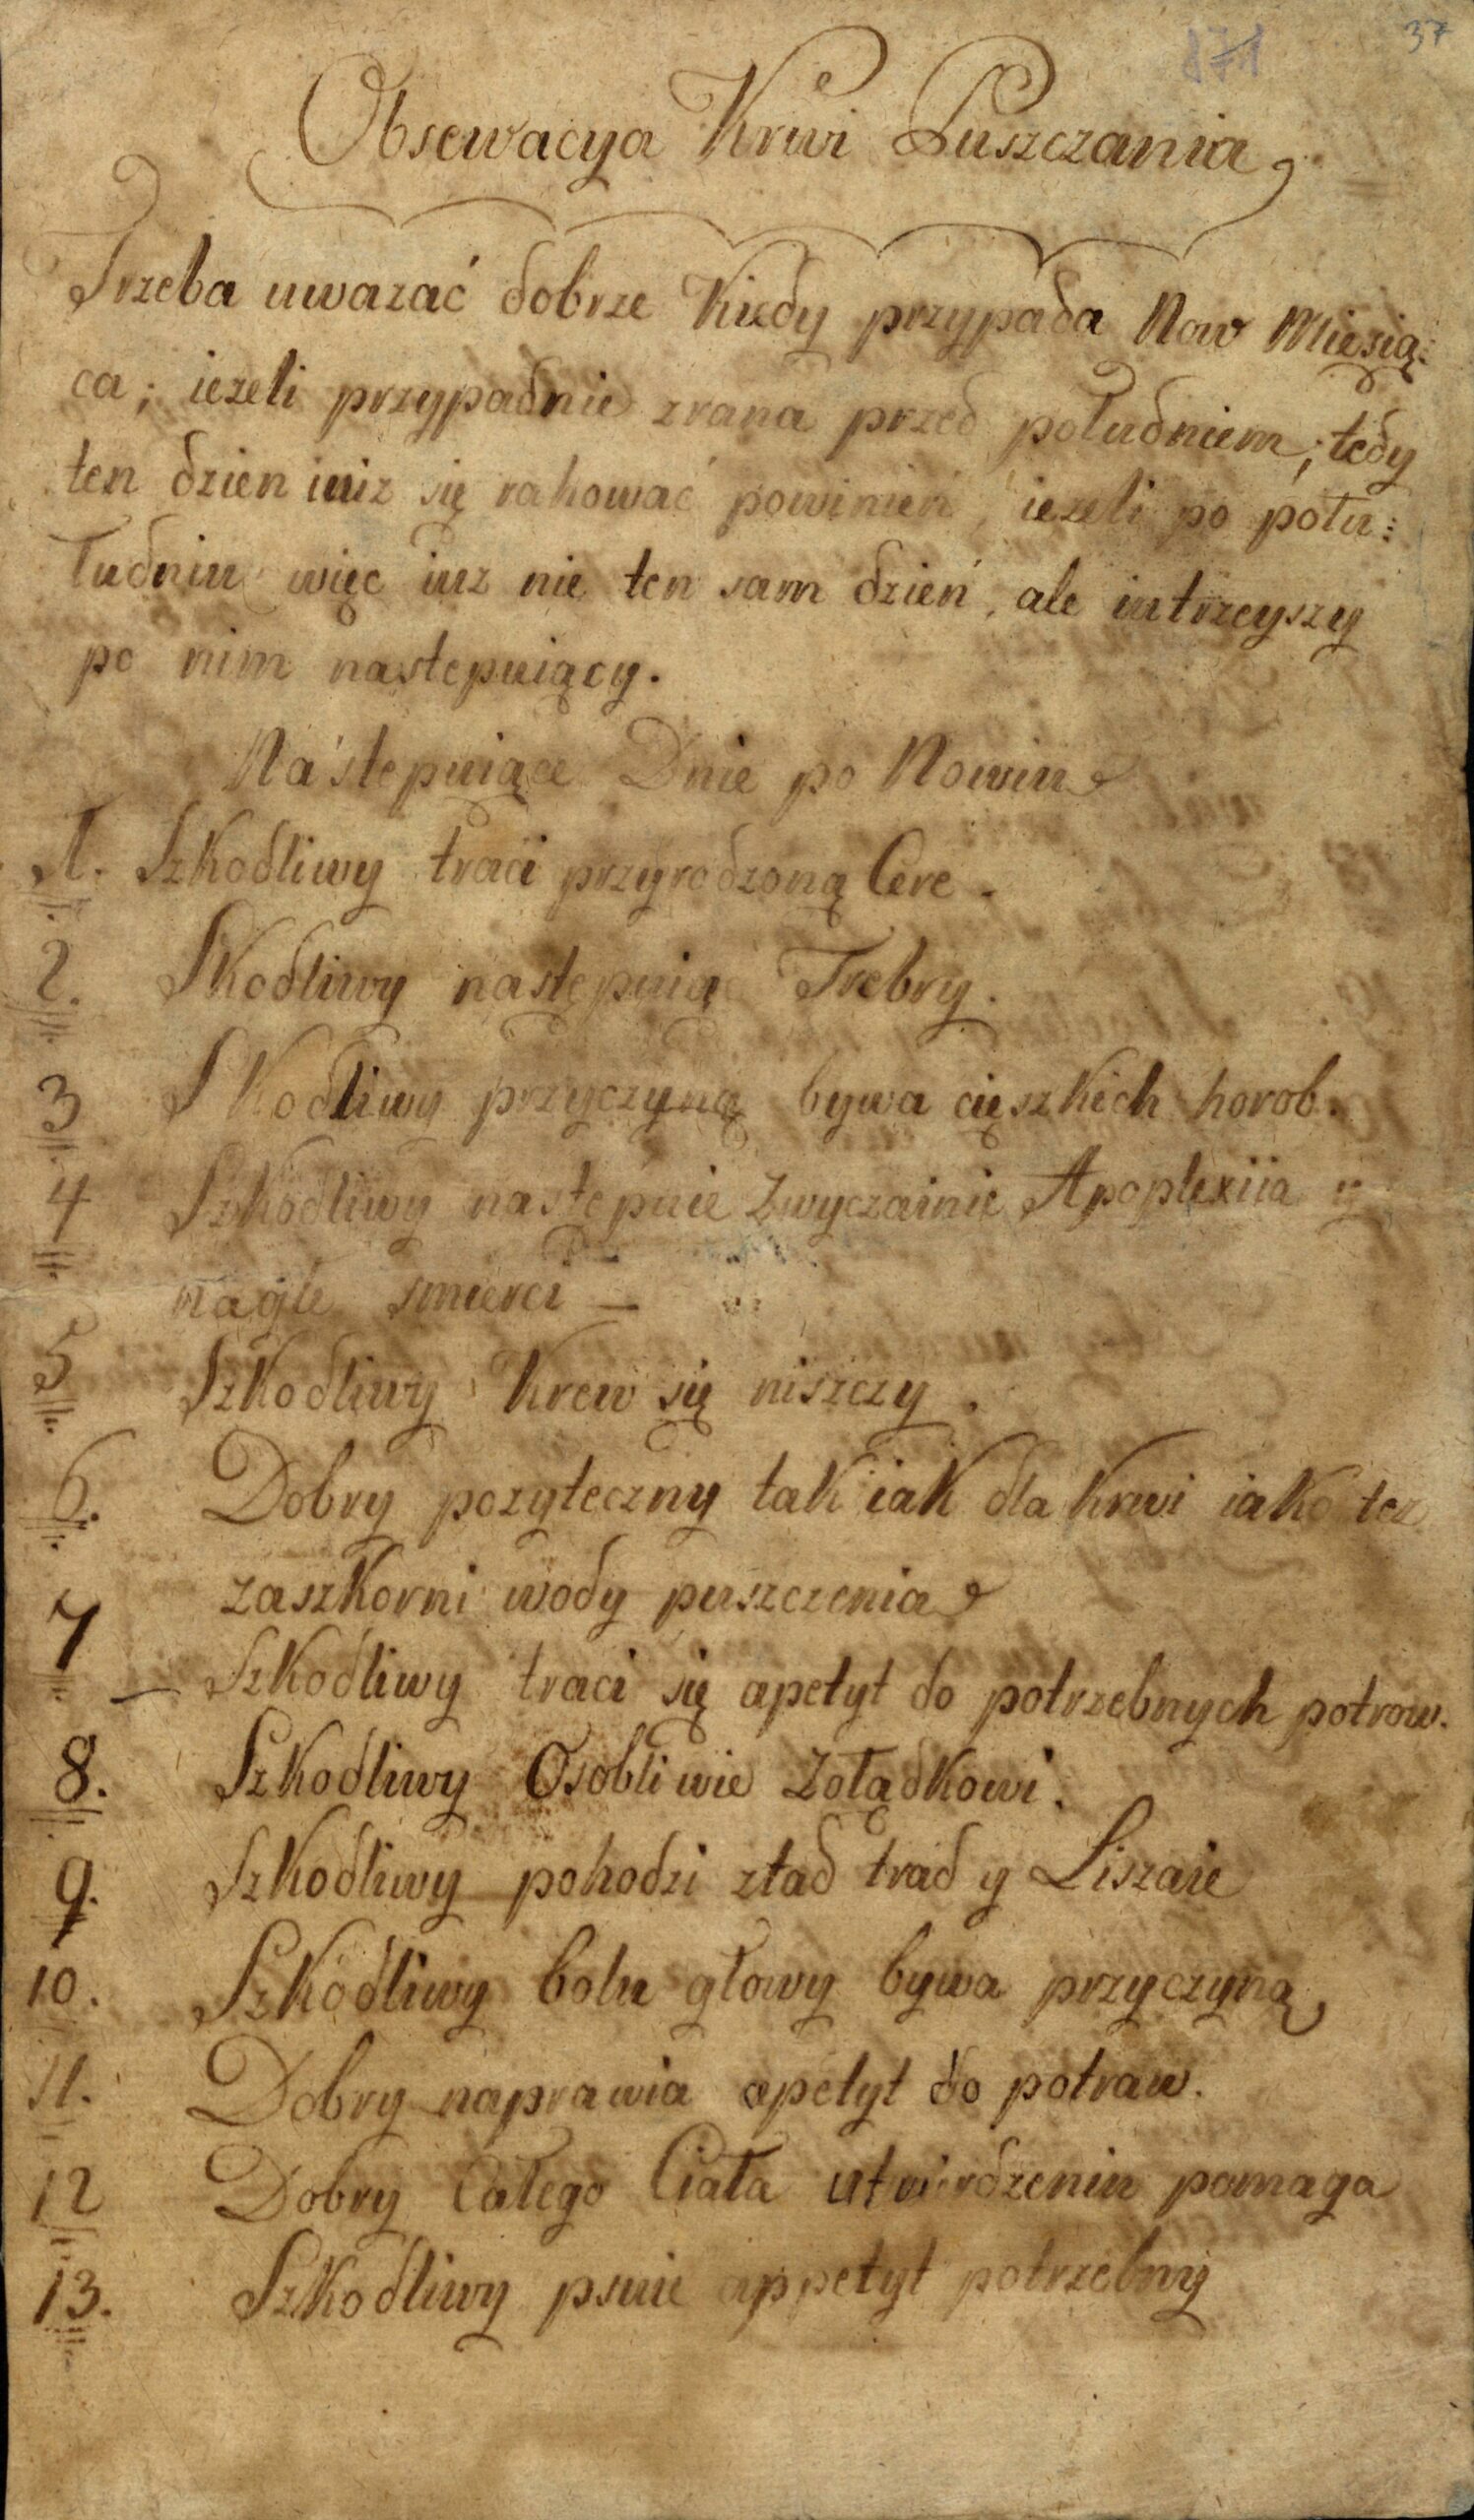 871 37
Obsewacya Krwi Puszczania
Trzeba uwazać dobrze Kiedy przypada Now Miesią:
ca; iezeli przypadnie zrana przed południem; tedy
ten dzien iuiz się rahować powinień, iezeli po połu:
łudniu więc iuz nie ten sam dzień, ale iutrzeyszy
po nim nastepuiący.
Nastepuiące Dnie po Nowiu
1. Szkodliwy traci przyrodzoną Cere.
2. Skodliwy nastepuią Frebry.
3 Skodliwy przyczyną bywa cięszkich horob.
4 Szkodliwy nastepuie Zwyczainie Apoplexiia y
nagle smierci —
5 Szkodliwy Krew się niszczy.
6. Dobry pozyteczny tak iak dla Krwi iako tez
zaszkorni wody puszczenia
7 — Szkodliwy traci się apetyt do potrzebnych potraw.
8. Szkodliwy Osobliwie Zołądkowi.
9. Szkodliwy pohodzi ztad trad y Liszaie
10. Szkodliwy bolu głowy bywa przyczyną
11. Dobry naprawia apetyt do potraw.
12 Dobry Całego Ciała utwirdzeniu pomaga
13. Szkodliwy psuie appetyt potrzebny